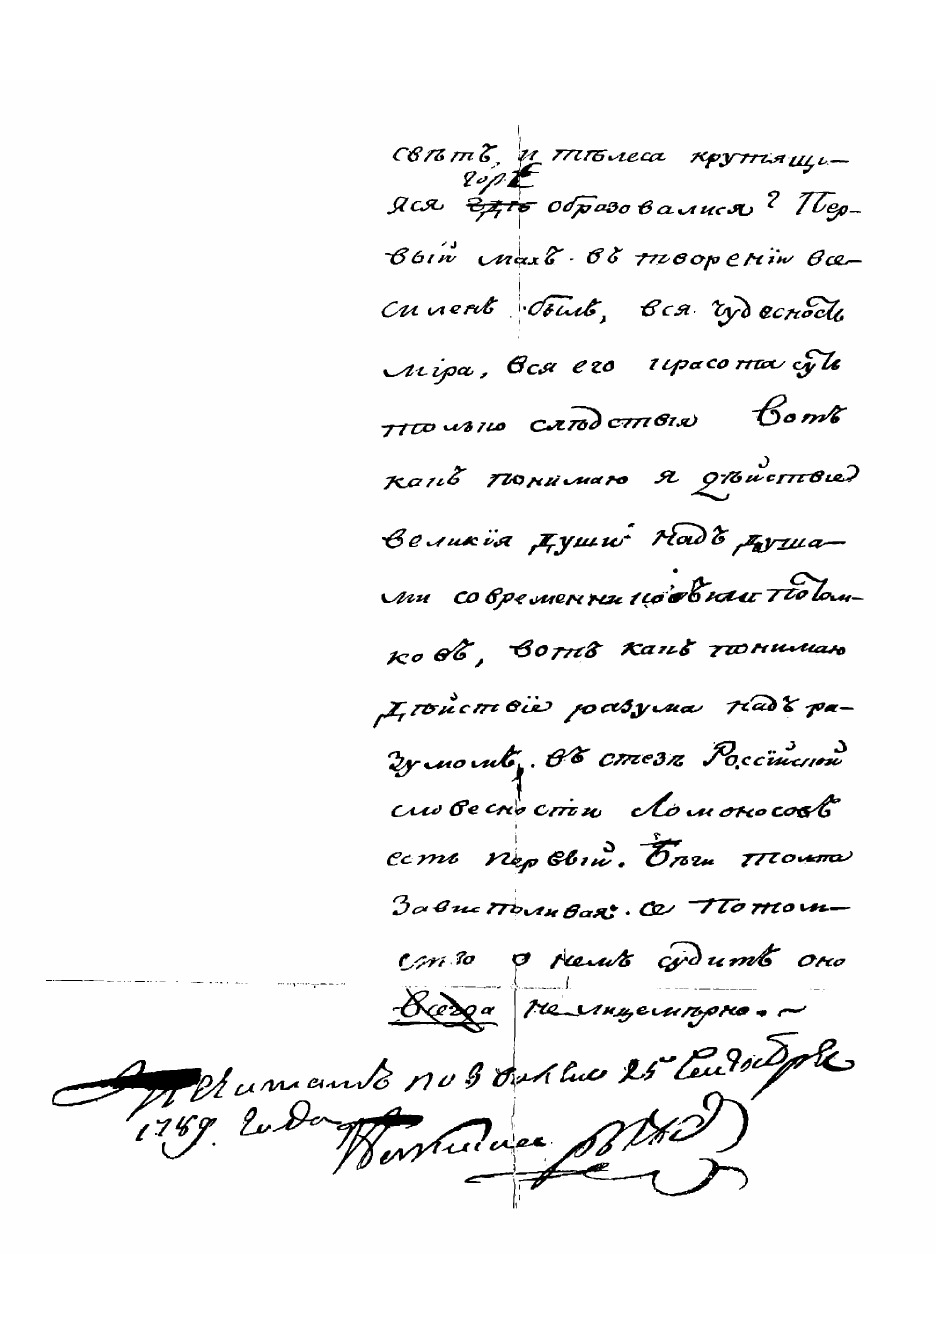 свѣтъ, и тѣлеса крутящи-
горѣ
яся гдѣ образовалися? Пер-
вый махъ въ творенїи все-
силенъ былъ, вся чудесность
міра, вся его красота суть
только слѣдствія Вотъ
какъ понимаю я дѣйствіе
великїя души надъ душа-
ми современниковъ или потом-
ковъ, вотъ какъ понимаю
дѣйствїе разума надъ ра-
зумомъ. въ стезѣ Россїйской
словесности Ломоносовъ
есть первый. Бѣги толпа
завистливая: се потом-
ство о немъ судитъ оно
всегда нелицемѣрно. ~
Печатать позволено 25 Сентября
1789. Года